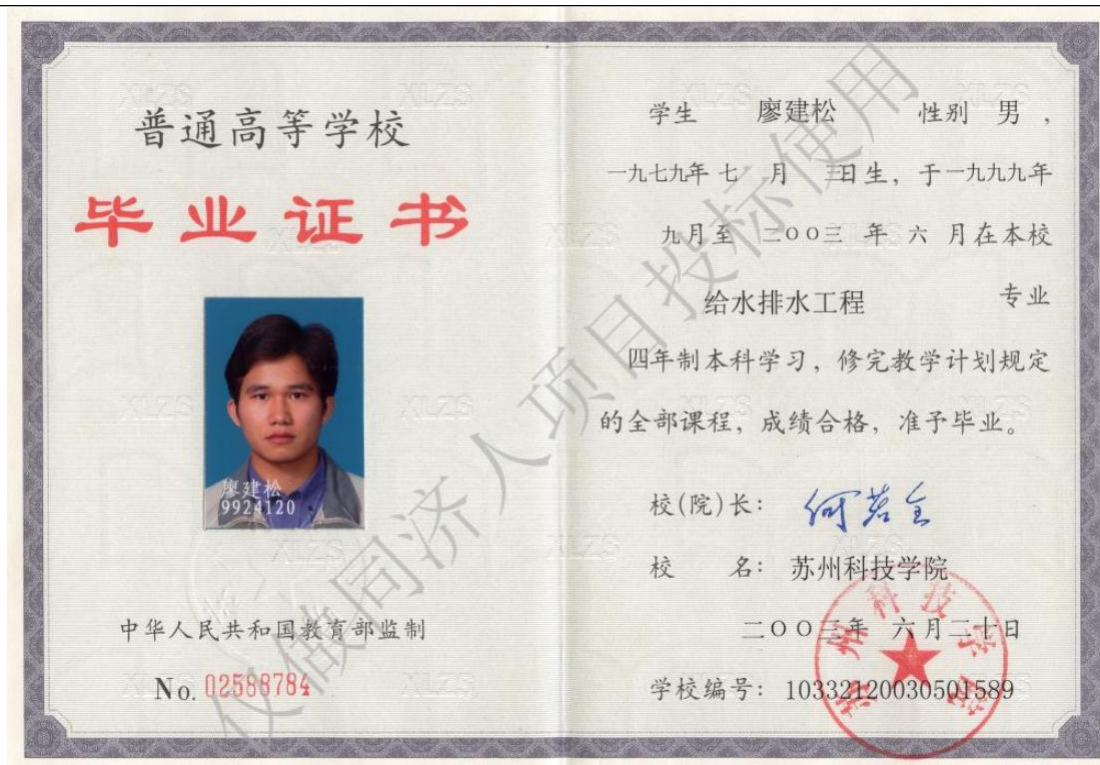 普通高等学校
毕业证书
廖建松
9924120
中华人民共和国教育部监制
No. 02588784
学生 廖建松 性别 男，
一九七九年 七 月 三日生，于一九九九年
九月至 二〇〇三 年 六 月在本校
给水排水工程 专业
四年制本科学习，修完教学计划规定
的全部课程，成绩合格，准予毕业。
校(院)长： 何若全
校 名： 苏州科技学院
二〇〇三年 六月二十日
学校编号： 10332120030501589
苏州科技学院
仅做同济人项目投标使用
XLZS